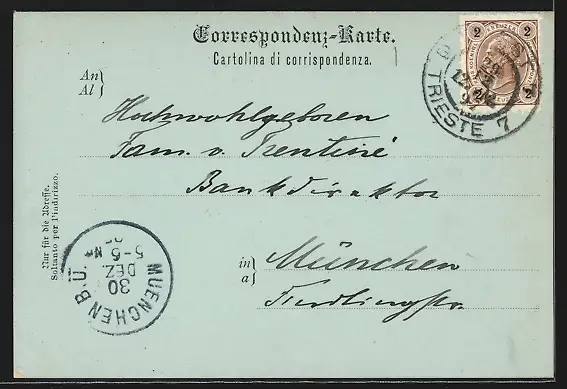 Correspondenz-Karte.
Cartolina di corrispondenza.
2 2
2 2
TRIESTE 7
An
Al
Hochwohlgeboren
Fam. v. Trentini
Bankdirektor
in
a
München
Nur für die Adresse.
Soltanto per l'indirizzo.
MUENCHEN B.Ü.
30
DEZ.
5-6 N